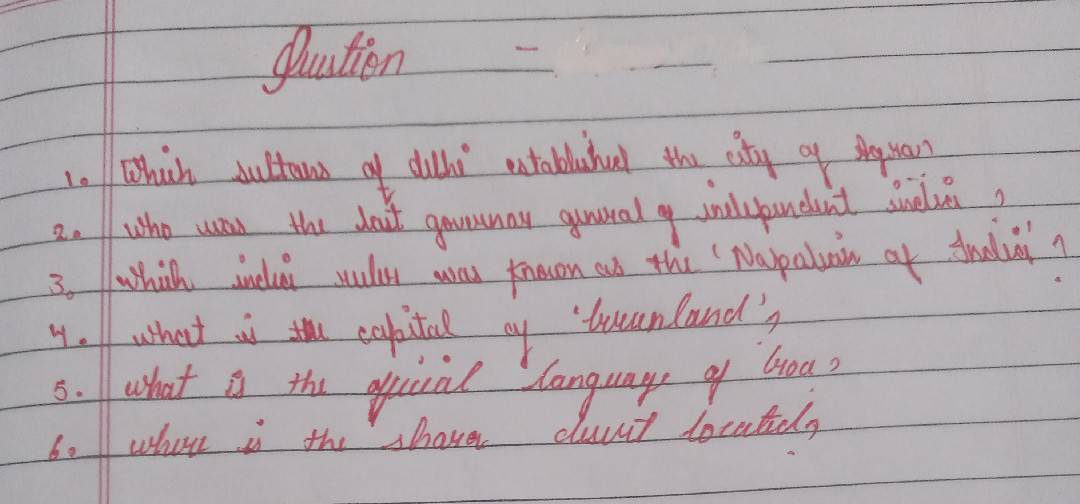 Question -
1. Which sultans of delhi established the city of Agra?
2. who was the last governor general of independent india ?
3. which india ruler was known as the 'Napalion of India' ?
4. what is the capital of 'Greenland'?
5. what is the official language of Goa?
6. where is the shara desert located?